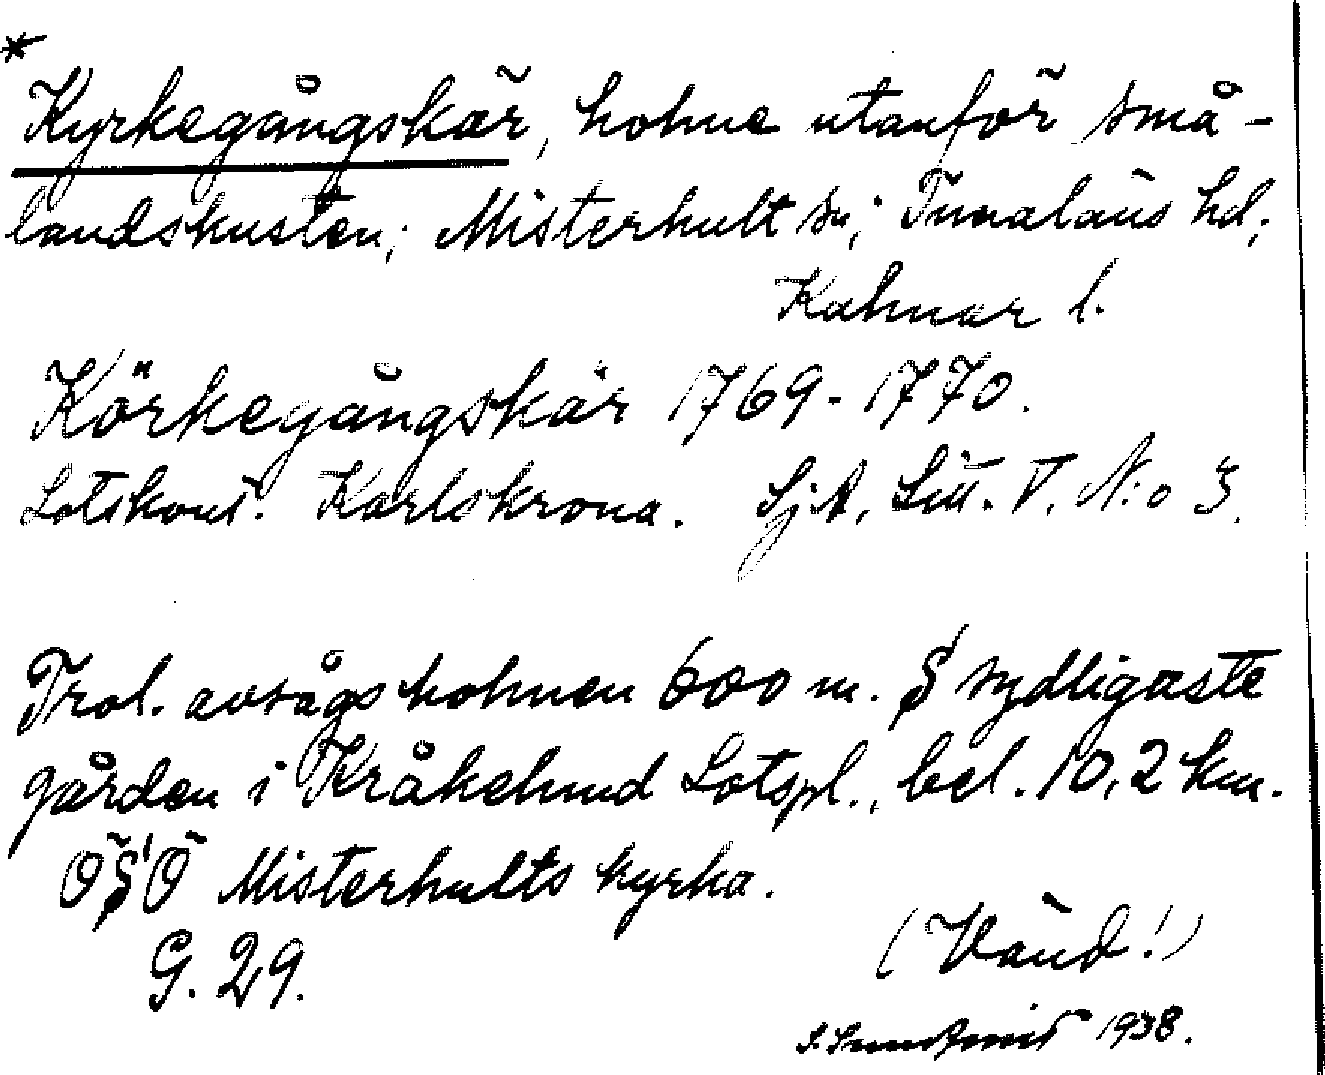 *
Kyrkegångskär, holme utanför små-
landskusten; Misterhult sn; Tunaläns hd;
Kalmar l.
Körkegångskär 1769-1770.
Lotskont. Karlskrona. Sj.A. Litt. V. N:o 3.
Trol. avsågs holmen 600 m. S sydligaste
gården i Kråkelund Lotspl., bel. 10,2 km.
ÖSÖ Misterhults kyrka.
G. 29.
(Vänd!)
1938.